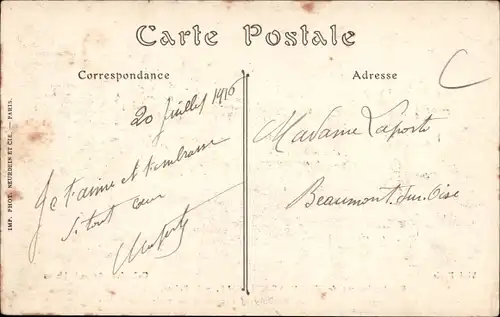 Carte Postale
Correspondance
Adresse
20 Juillet 1916
Madame Laporte
Beaumont-sur-Oise
Je t'aime et t'embrasse
si tout cœur
IMP. PHOT. NEURDEIN ET CIE. — PARIS.